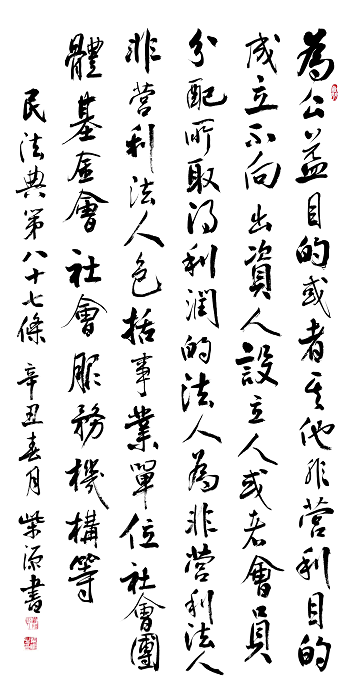 為公益目的或者其他非營利目的
成立不向出資人設立人或者會員
分配所取得利潤的法人為非營利法人
非營利法人包括事業單位社會團
體基金會社會服務機構等
民法典第八十七條 辛丑春月 柴源書